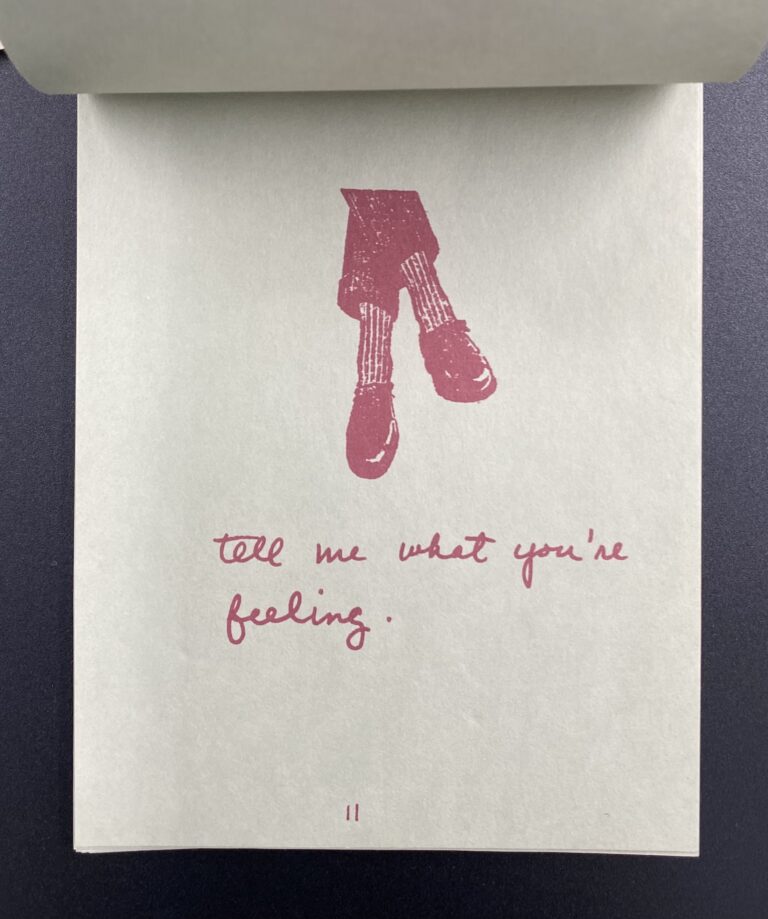 tell me what you're
feeling.
11